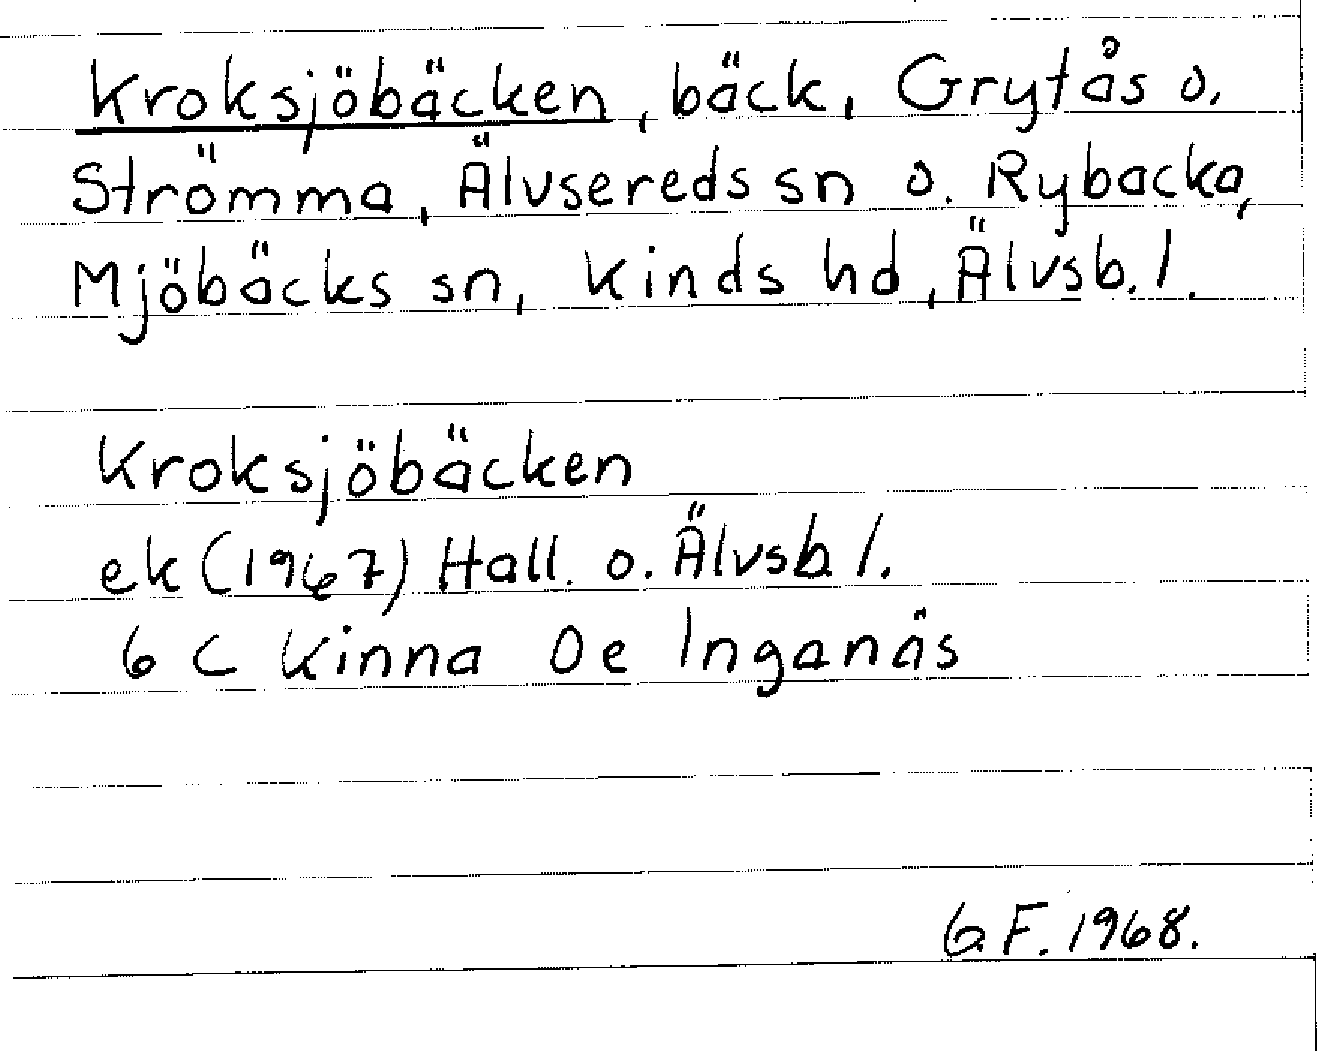 Kroksjöbäcken, bäck, Grytås o.
Strömma, Älvsereds sn o. Rybacka,
Mjöbäcks sn, Kinds hd, Älvsb. l.
Kroksjöbäcken
ek (1967) Hall. o. Älvsb l.
6 C Kinna 0e Inganäs
G F. 1968.